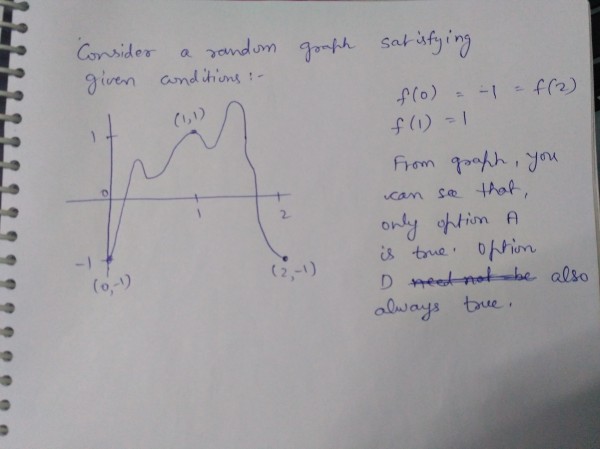 Consider a random graph satisfying
given conditions :-
f(0) = -1 = f(2)
f(1) = 1
(1,1)
1
From graph, you
can see that,
0
1
2
only option A
is true. Option
-1
(2,-1)
D need not be also
(0,-1)
always true.